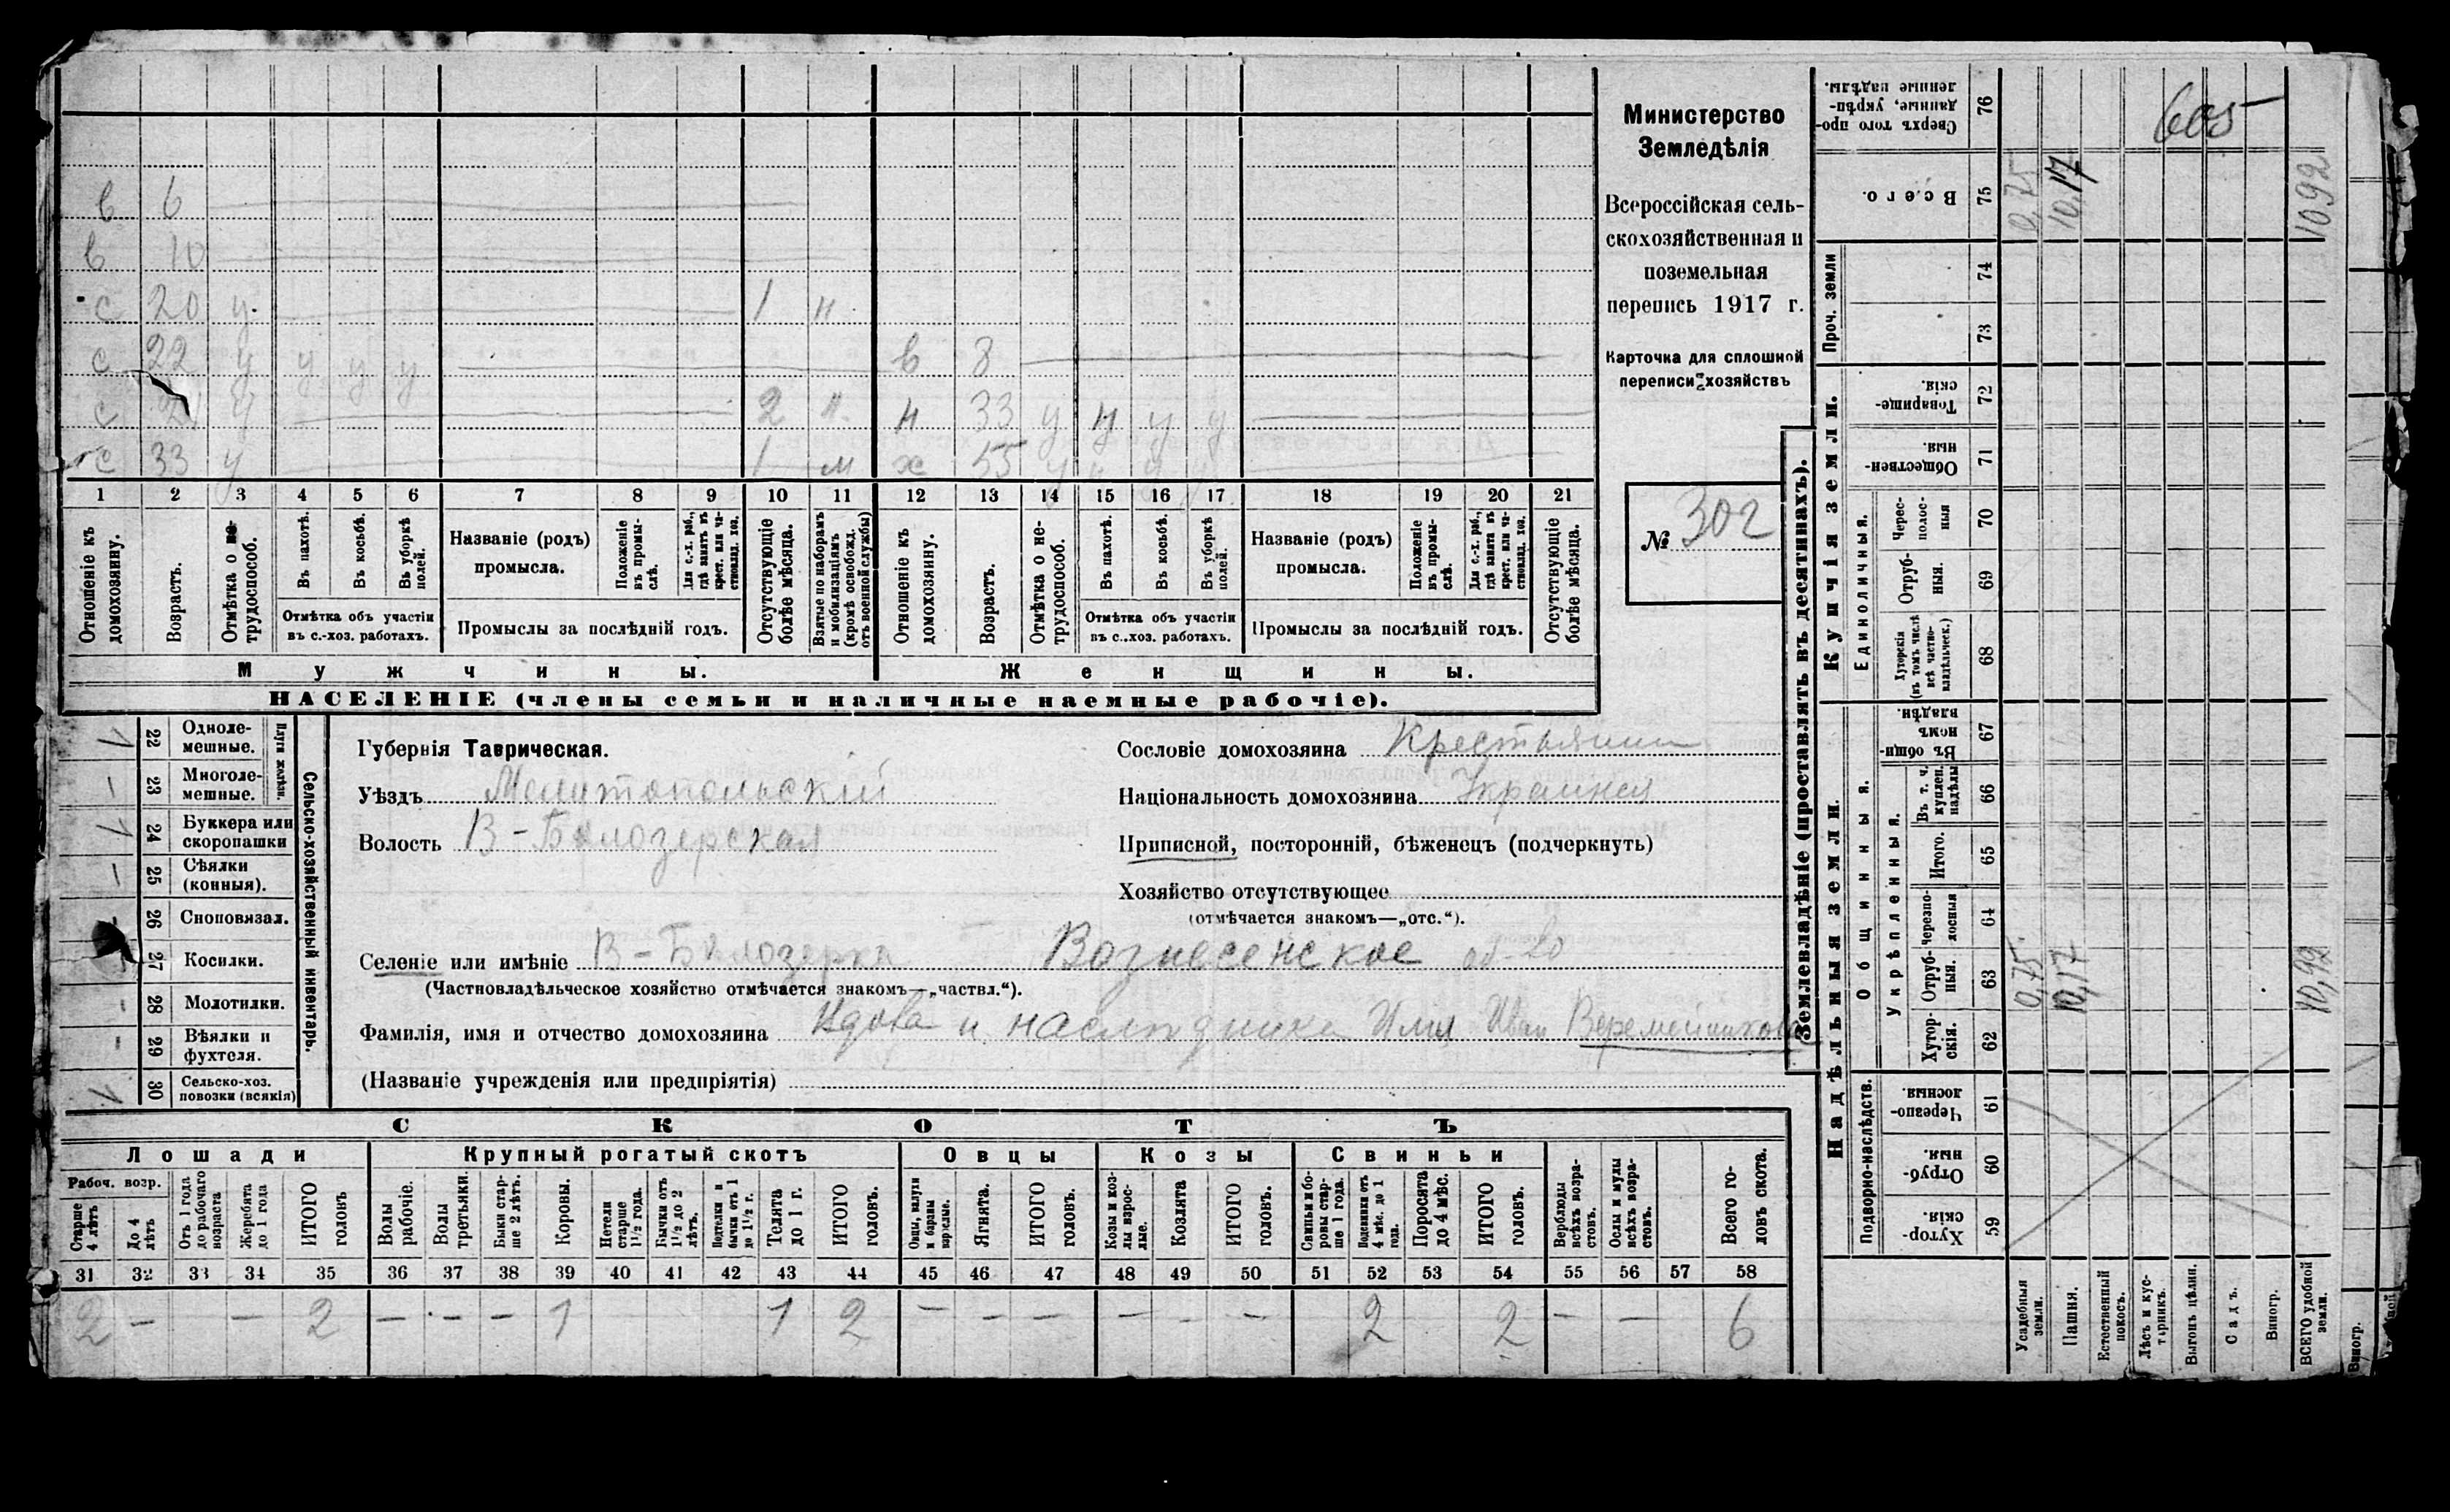 Министерство
Земледѣлія
Всероссійская сель-
скохозяйственная и
поземельная
перепись 1917 г.
Карточка для сплошной
переписи хозяйствъ
№ 302
в 6
в 10
с 20 у. 1 н
с 22 у у у у в 8
с у 2 н. н 33 у у у у
с 33 у 1 м ж 55 у у у у
1 2 3 4 5 6 7 8 9 10 11 12 13 14 15 16 17 18 19 20 21
Отношеніе къ домохозяину.
Возрастъ.
Отмѣтка о не-трудоспособ.
Въ пахотѣ.
Въ косьбѣ.
Въ уборкѣ полей.
Отмѣтка объ участіи въ с.-хоз. работахъ.
Названіе (родъ) промысла.
Положеніе въ промы-слѣ.
Для с.-х. раб., гдѣ занятъ въ крест. или ча-стновлад. хоз.
Промыслы за послѣдній годъ.
Отсутствующіе болѣе мѣсяца.
Взятые по наборамъ и мобилизаціямъ (кромѣ освобожд. отъ военной службы)
Отношеніе къ домохозяину.
Возрастъ.
Отмѣтка о не-трудоспособ.
Въ пахотѣ.
Въ косьбѣ.
Въ уборкѣ полей.
Отмѣтка объ участіи въ с..хоз. работахъ.
Названіе (родъ) промысла.
Положеніе въ промы-слѣ.
Для с.-х. раб., гдѣ занята въ крест. или ча-стновлад. хоз.
Промыслы за послѣдній годъ.
Отсутствующіе болѣе мѣсяца.
Мужчины. Женщины.
НАСЕЛЕНІЕ (члены семьи и наличные наемные рабочіе).
Сельско-хозяйственный инвентарь.
Плуги желѣзн.
22 Одноле-мешные.
23 Многоле-мешные.
24 Буккера или скоропашки
25 Сѣялки (конныя).
26 Сноповязал.
27 Косилки.
28 Молотилки.
29 Вѣялки и фухтеля.
30 Сельско-хоз. повозки (всякія)
Губернія Таврическая.
Уѣздъ Мелитопольскій
Волость В-Бѣлозерская
Сословіе домохозяина Крестьянин
Національность домохозяина
Приписной, посторонній, бѣженецъ (подчеркнуть)
Хозяйство отсутствующее
(отмѣчается знакомъ—„отс.“).
Селеніе или имѣніе В-Бѣлозерка Вознесенское об-во
(Частновладѣльческое хозяйство отмѣчается знакомъ—„частвл.“).
Фамилія, имя и отчество домохозяина Вдова и наследники Иван Веремейчикова
(Названіе учрежденія или предпріятія)
СКОТЪ
Лошади Крупный рогатый скотъ Овцы Козы Свиньи
Рабоч. возр.
Старше 4 лѣтъ
До 4 лѣтъ
Отъ 1 года до рабочаго возраста
Жеребята до 1 года
ИТОГО головъ
Волы рабочіе.
Волы третьяки.
Быки стар-ше 2 лѣтъ.
Коровы.
Нетели старше 1½ года.
Бычки отъ 1½ до 2 лѣтъ.
Подтелки и бычки отъ 1 до 1½ г.
Телята до 1 г.
ИТОГО головъ.
Овцы, валухи и бараны взрослые.
Ягнята.
ИТОГО головъ.
Козы и коз-лы взрос-лые.
Козлята
ИТОГО головъ.
Свиньи и бо-ровы стар-ше 1 года.
Подсвинки отъ 4 мѣс. до 1 года.
Поросята до 4 мѣс.
ИТОГО головъ.
Верблюды всѣхъ возра-стовъ.
Ослы и мулы всѣхъ возра-стовъ.
Всего го-ловъ скота.
31 32 33 34 35 36 37 38 39 40 41 42 43 44 45 46 47 48 49 50 51 52 53 54 55 56 57 58
2 — — 2 — — — 1 1 2 — — — — — — 2 2 — — 6
Землевладѣніе (проставлять въ десятинахъ).
605
Сверхъ того про-данные, укрѣп-ленные надѣлы. 76
Всего. 75 0,75 10,17 1092
Купчія земли.
Проч. земли 74 73
Товарище-скія. 72
Обществен-ныя. 71
Единоличныя.
Черес-полос-ныя 70
Отруб-ныя. 69
Хуторскія (въ томъ числѣ всѣ частно-владѣльческ.) 68
Надѣльныя земли.
Общинныя.
Въ общин-номъ владѣн. 67
Укрѣпленныя.
Въ т. ч. куплен. надѣлы 66
Итого. 65
Черезпо-лосныя 64
Отруб-ныя. 63 0,75 10,17 10,92
Хутор-скія. 62
Подворно-наслѣдств.
Черезпо-лосныя. 61
Отруб-ныя. 60
Хутор-скія. 59
Усадебныя земли.
Пашня.
Естественный покосъ.
Лѣсъ и кус-тарникъ.
Выгонъ цѣлин.
Садъ.
Виногр.
ВСЕГО удобной земли.
Виногр.